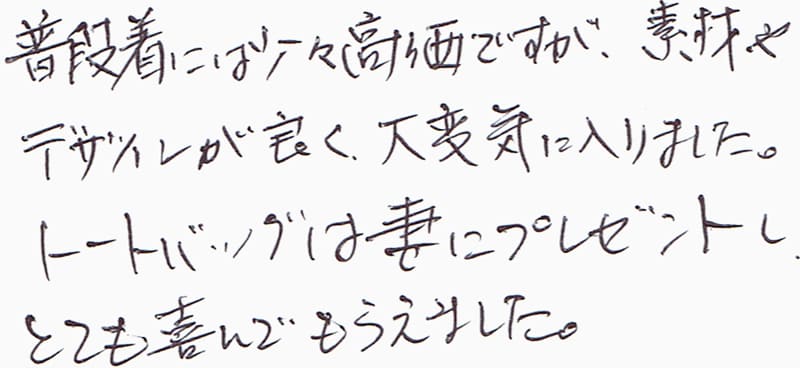 普段着には少々高価ですが、素材や
デザインが良く、大変気に入りました。
トートバッグは妻にプレゼントし、
とても喜んでもらえました。